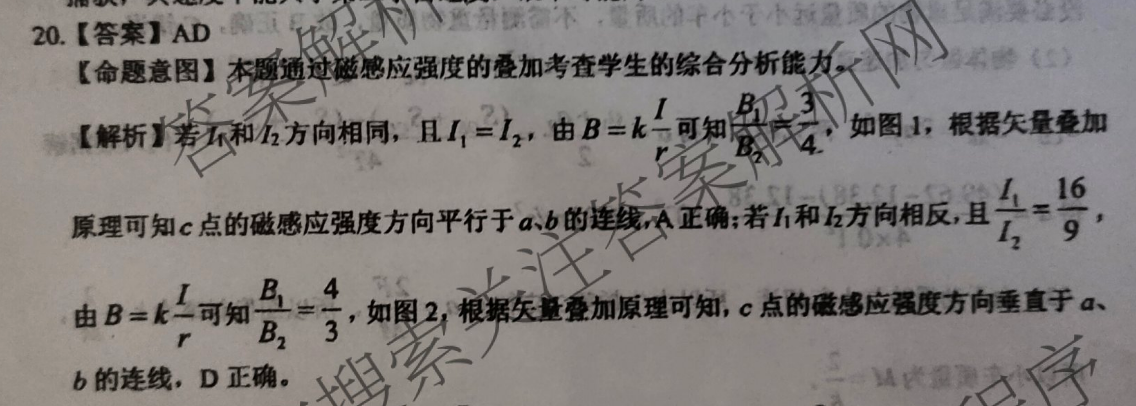 20.【答案】AD
【命题意图】本题通过磁感应强度的叠加考查学生的综合分析能力。
【解析】若 I₁和 I₂ 方向相同，且 I₁ = I₂，由 B = k I/r 可知 B₁/B₂ = 3/4，如图 1，根据矢量叠加
原理可知 c 点的磁感应强度方向平行于 a、b 的连线，A 正确；若 I₁和 I₂ 方向相反，且 I₁/I₂ = 16/9，
由 B = k I/r 可知 B₁/B₂ = 4/3，如图 2，根据矢量叠加原理可知，c 点的磁感应强度方向垂直于 a、
b 的连线，D 正确。
答案解析网
搜索关注答案解析网
程序